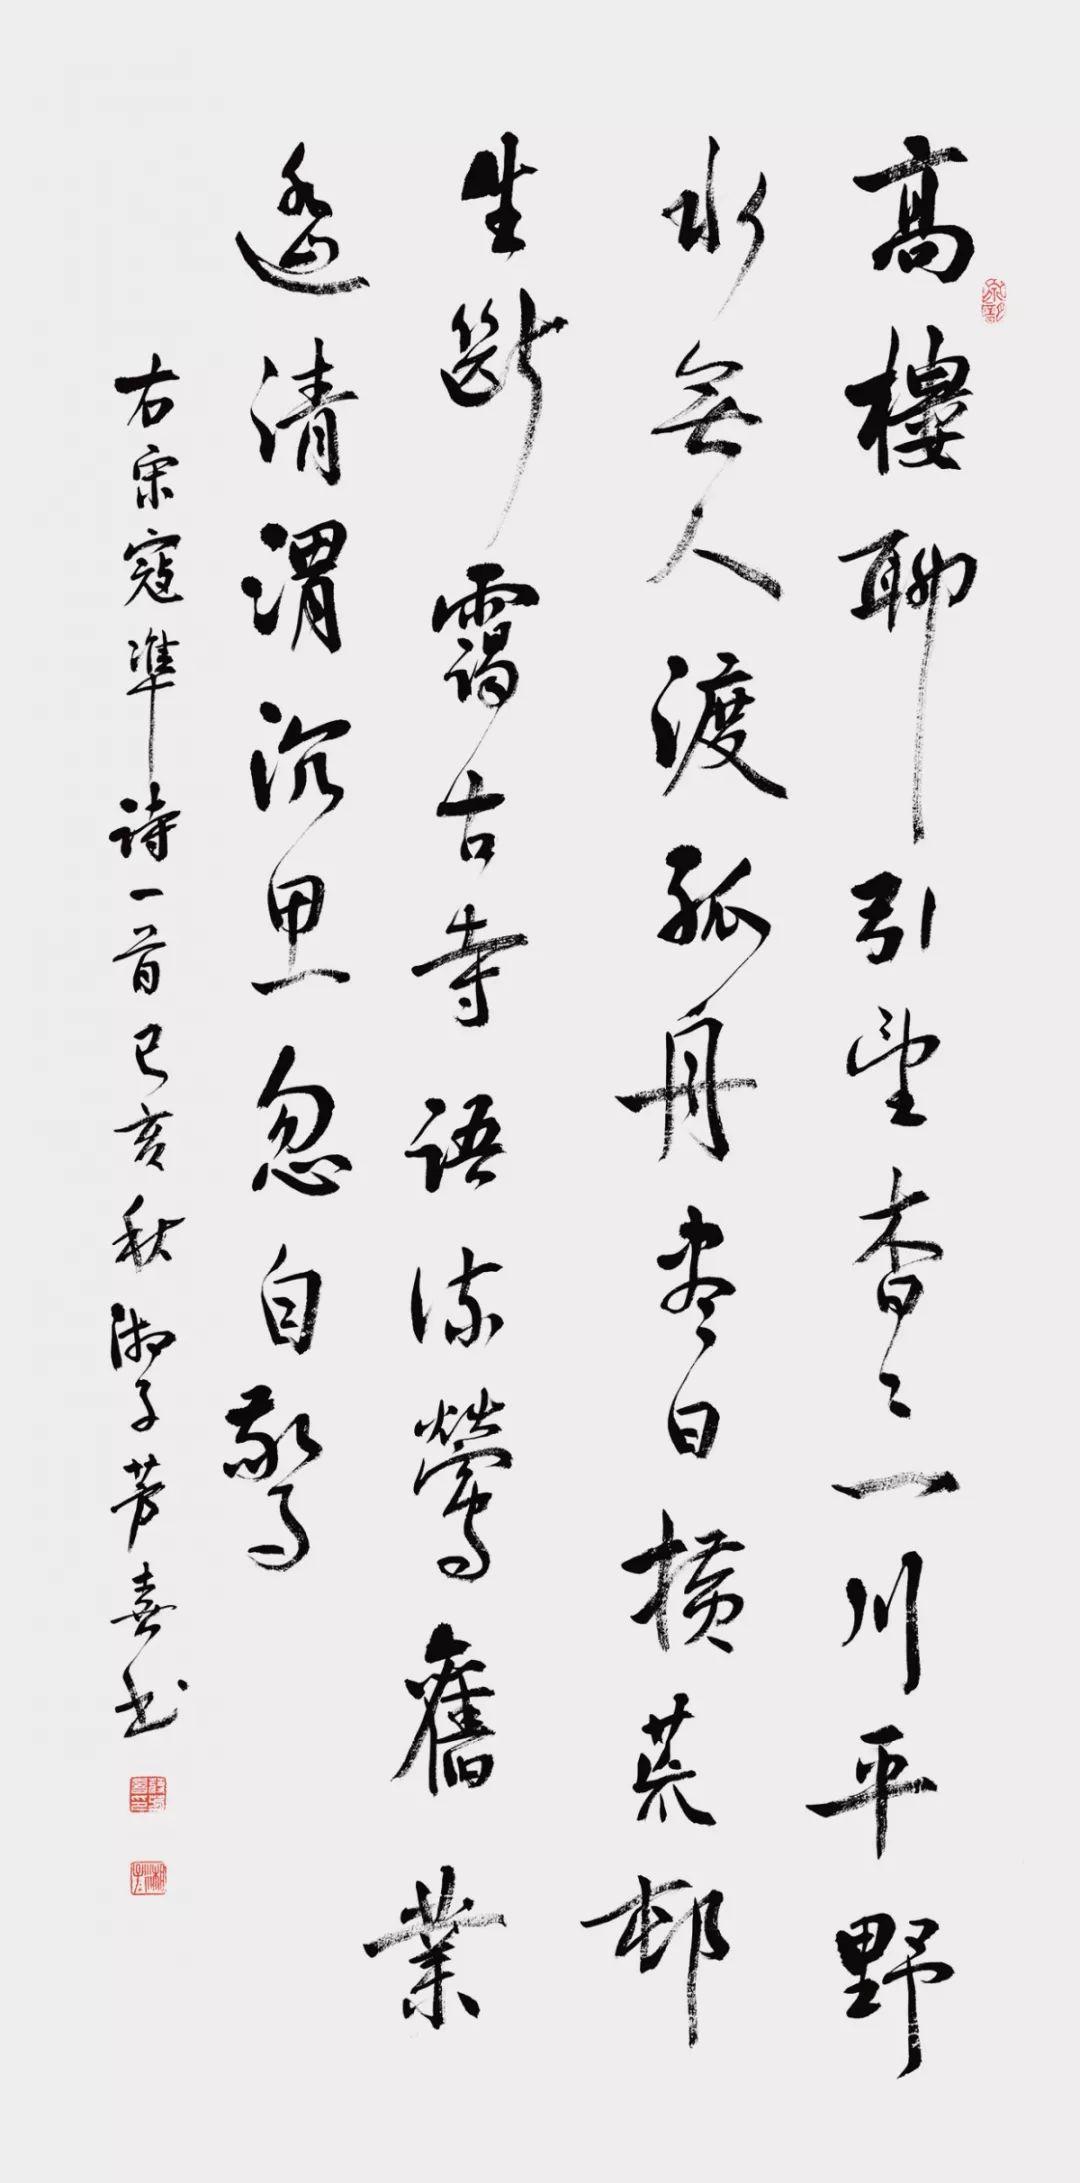 高樓聊引望杳〻一川平野
水無人渡孤舟盡日橫荒邨
生斷靄古寺語流鶯舊業
遙清渭沉思忽自驚
右宋寇準詩一首己亥秋湘子芳喜书